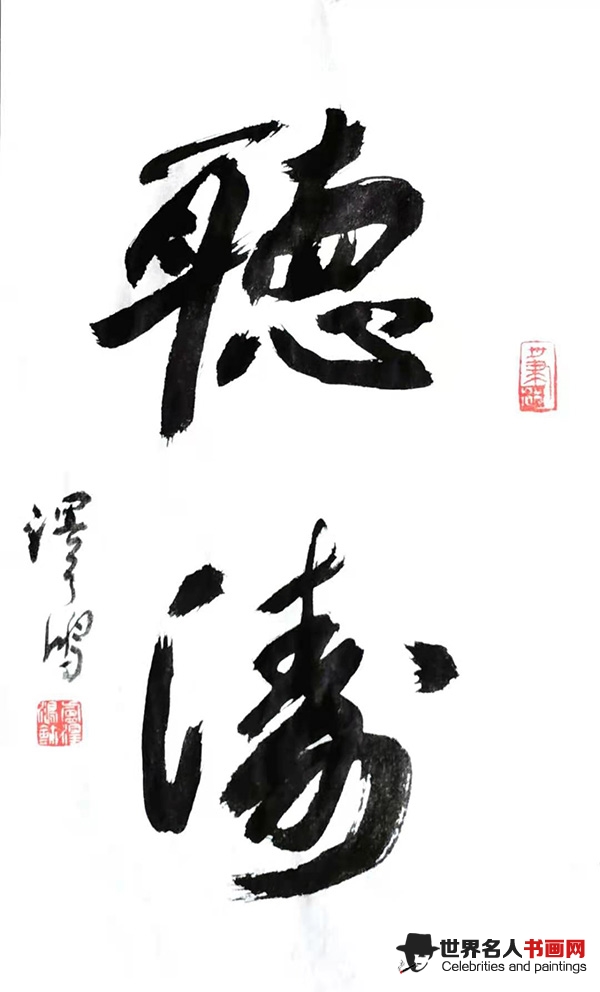 聽
濤
世界名人书画网
Celebrities and paintings